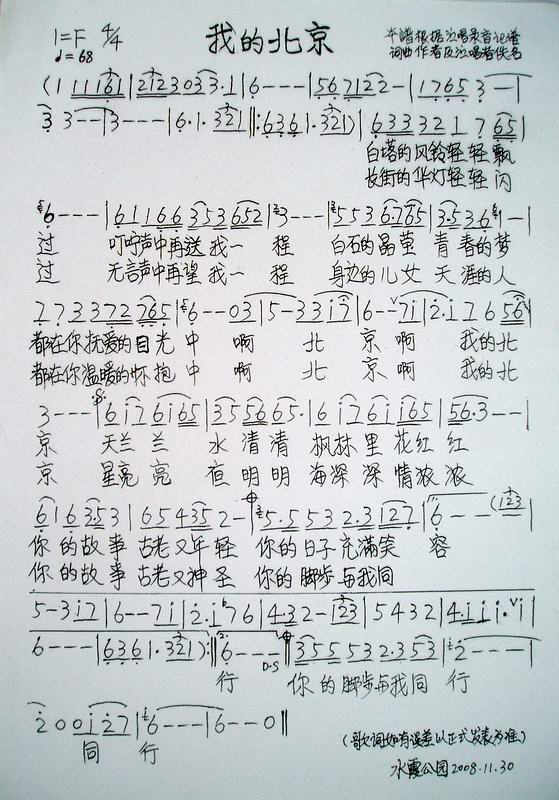 1=F 4/4 我的北京 本谱根据演唱录音记谱
♩=68 词曲作者及演唱者佚名
(1 11161 | 2123033·1 | 6--- | 567122- | 1765 3-- |
3 3-- | 3--- | 6·1·321 ‖: 6361·321) | 633321 7 65 |
白塔的风铃轻轻飘
长街的华灯轻轻闪
6--- | 61166353652 | 3--- | 5536·765 | 3·536 1- |
过 叮咛声中再送我一 程 白石的晶莹 青春的梦
过 无言声中再望我一 程 身边的儿女 天涯的人
773372765 | 6--03 | 5-3317 | 6--71 | 2·17656 |
都在你抚爱的目光 中 啊 北 京 啊 我的北
都在你温暖的怀抱 中 啊 北 京 啊 我的北
3--- | 6176165 | 355665· | 61761165 | 56·3-- |
京 天兰 兰 水清清 枫林里花红红
京 星亮 亮 夜明明 海深深情浓浓
6163·53 | 654352- | 5·5532·3127 | 6-- (123 |
你的故事 古老又年轻 你的日子充满笑 容
你的故事 古老又神圣 你的脚步与我同
5-317 | 6--71 | 2·1 76 | 4·32-123 | 5432 | 4·111·1 |
6--- | 6361·321) :‖ 6--- D·S ‖ 355532·353 | 2--- |
行 你的脚步与我同 行
2 00127 | 6--- | 6--0 ‖
同 行
(歌词如有误差以正式发表为准)
水霞公园2008.11.30